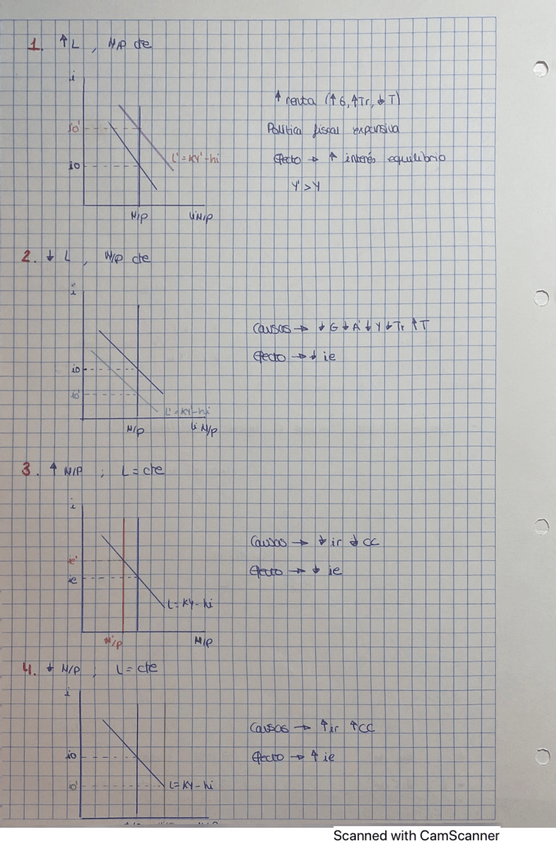 1. ↑L , M/P cte
i
↑ renta (↑G, ↑Tr, ↓T)
io'
Política fiscal expansiva
L' = KY'-hi
Efecto → ↑ interés equilibrio
io
Y' > Y
M/P L, M/P
2. ↓ L , M/P cte
i
Causas → ↓G ↓A ↓Y ↓Tr ↑T
Efecto → ↓ ie
io
io'
L' = KY-hi
M/P L, M/P
3. ↑ M/P ; L = cte
i
Causas → ↓ ir ↓ CC
ie'
Efecto → ↓ ie
ie
L = KY-hi
M'/P M/P
4. ↓ M/P ; L = cte
i
Causas → ↑ir ↑CC
io
Efecto → ↑ ie
io'
L = KY-hi
Scanned with CamScanner